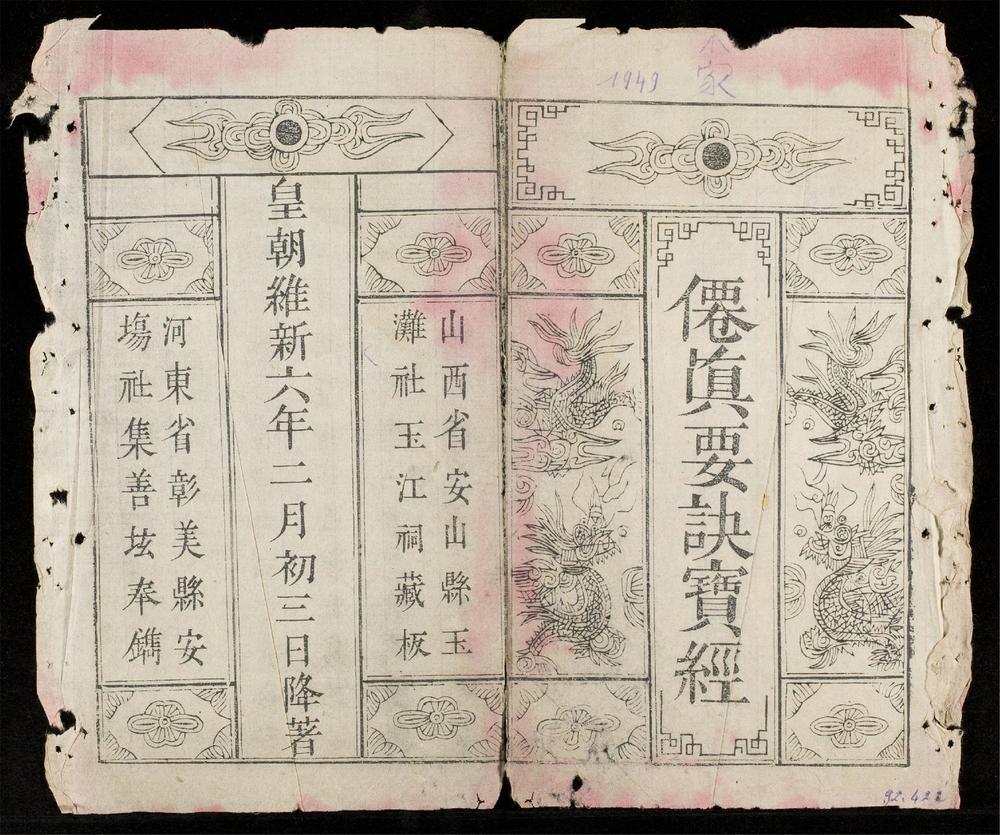 1949 家
僊眞要訣寶經
山西省安山縣玉
灘社玉江祠藏板
皇朝維新六年二月初三日降著
河東省彰美縣安
塲社集善坛奉鐫
92.422